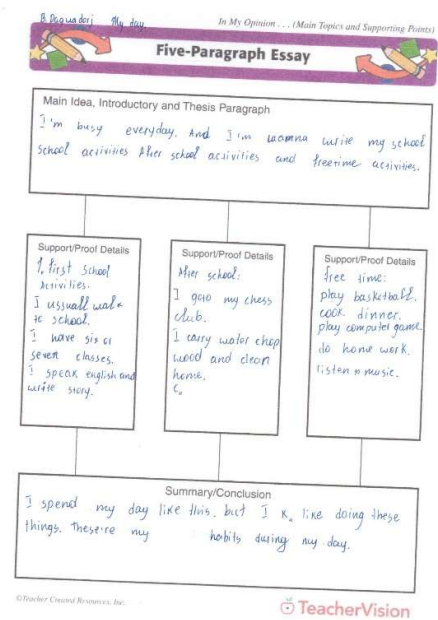 B. Dsguadorj My day.
In My Opinion . . . (Main Topics and Supporting Points)
Five-Paragraph Essay
Main Idea, Introductory and Thesis Paragraph
I'm busy everyday. And I'm wanna write my school
school activities After school activities and freetime activities.
Support/Proof Details
1. first School
Activities.
I ussuall walk
to school.
I have six or
seven classes.
I speak english and
write story.
Support/Proof Details
After school:
I goto my chess
club.
I carry water chop
wood and clean
home.
Support/Proof Details
free time:
play basketball.
cook dinner.
play computer game.
do home work.
listen music.
Summary/Conclusion
I spend my day like this. but I like doing these
things. These're my habits during my day.
©Teacher Created Resources, Inc.
TeacherVision